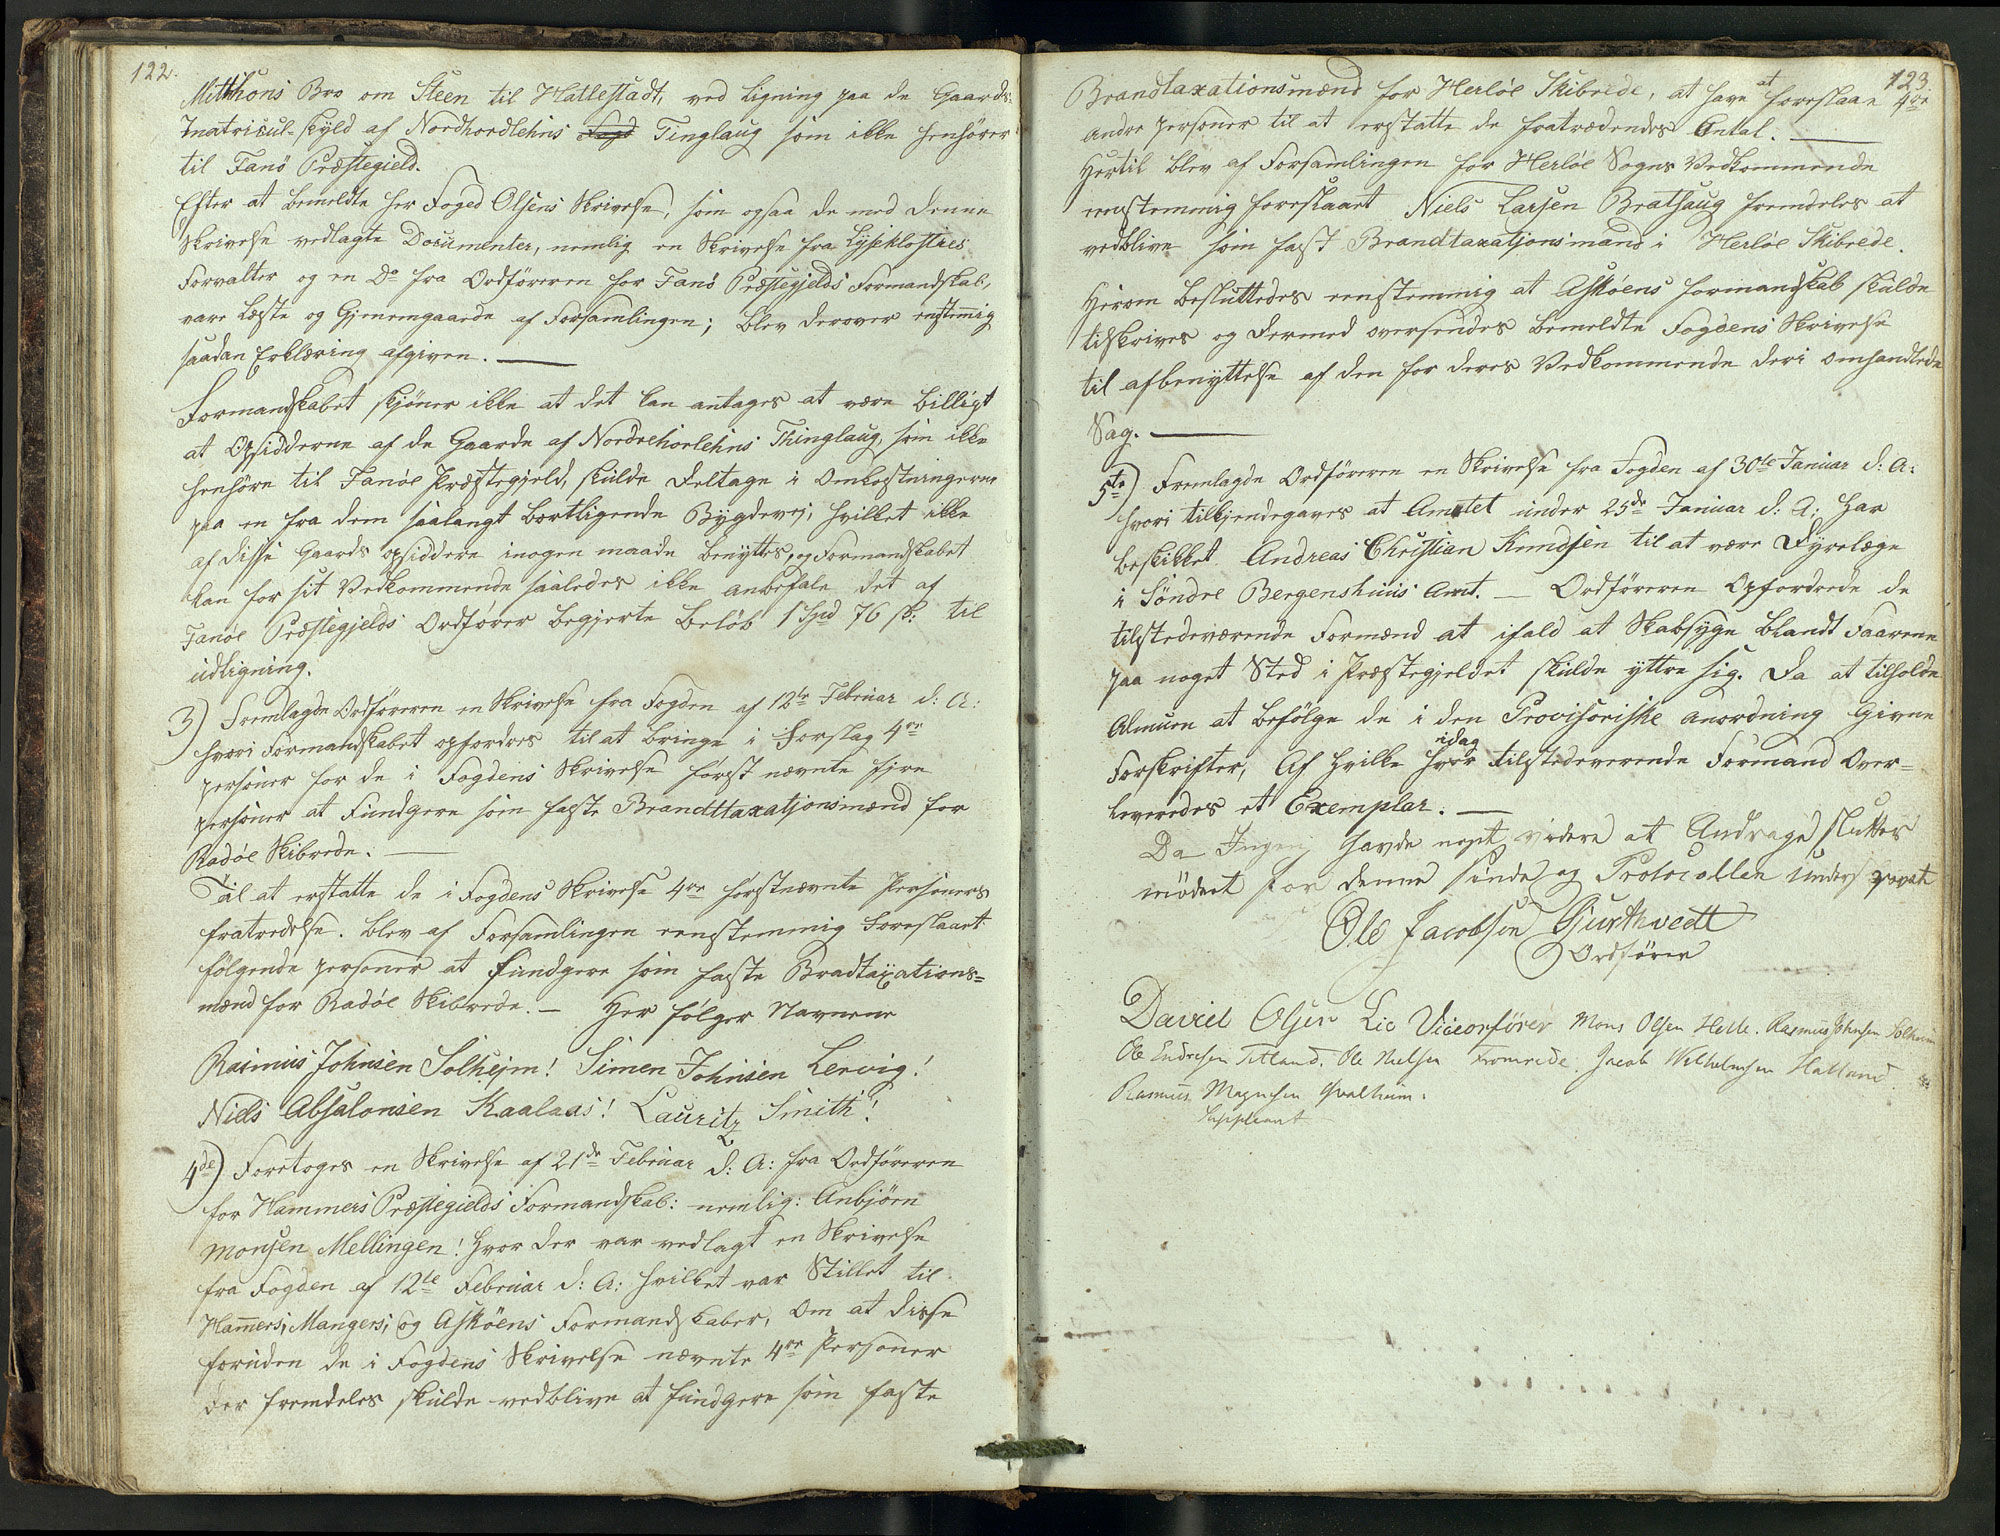 122.
Mitthuns Bro om Steen til Hatlestadt, ved Ligning paa de Gaardes
Matricul-Skyld af Nordhordlehns Fogd Tinglaug som ikke henhører
til Fanö Præstegield.
Efter at bemeldte Her Foged Olsens Skrivelse, som ogsaa de med denne
Skrivelse vedlagte Documenter, nemlig en Skrivelse fra Lyseklosters
Forvalter og en Do fra Ordføreren for Fanö Præstegjelds Formandskab,
vare læste og Gjenemgaaede af Forsamlingen; blev derover enstemig
saadan Erklæring afgiven. —
Formandskabet skjöner ikke at det kan antages at være billigt
at Opsidderne af de Gaarde af Nordrehorlehns Thinglaug, som ikke
henhöre til Fanöe Præstegjeld, skulde deltage i Omkostningerne
paa en fra dem saalangt bortligende Bygdevej, hvilket ikke
af disse Gaards opsiddere inogen maade benyttes, og Formandskabet
kan for sit Vedkommende saaledes ikke anbefale det af
Fanöe Præstegjelds Ordfører begjerte Belöb 1 Spd 76 sk: til
udligning.
3) Fremlagde Ordföreren en Skrivelse fra Fogden af 12te Februar d: A:
hvori Formandskabet opfordres til at bringe i Forslag 4re
personer for de i Fogdens Skrivelse først nævnte fire
personer at Fundgere som faste Brandttaxatjonsmænd for
Radöe Skibrede. —
Til at erstatte de i Fogdens Skrivelse 4re førstnævnte Personers
fratredelse. blev af Forsamlingen eenstemmig Foreslaaet
følgende personer at fundgere som faste Bradtaxations=
mænd for Radöe Skibrede. — Her følger Navnene
Rasmus Johnsen Solhejm! Simen Johnsen Lervig!
Niels Absalonsen Kaalaas! Lauritz Smith!
4de) Foretoges en Skrivelse af 21de Februar d: A: fra Ordføreren
for Hammers Præstegields Formandskab: nemlig: Anbjörn
Monsen Mellingen! hvor der var vedlagt en Skrivelse
fra Fogden af 12te Februar d: A: hvilket var Stillet til
Hamers, Mangers, og Askøens Formandskaber, Om at disse
foruden de i Fogdens Skrivelse nævnte 4re Personer
der fremdeles skulde vedblive at fundgere som faste
123.
Brandtaxationsmænd for Herløe Skibrede, at have at foreslaae 4re
andre personer til at erstatte de fratrædendes Antal. —
Hertil blev af Forsamlingen for Herlöe Sogns Vedkommende
eenstemmig foreslaaet Niels Larsen Brathaug fremdeles at
vedblive som fast Brandttaxatjonsmand i Herlöe Skibrede.
Herom besluttedes eenstemmig at Askøens formandskab skulde
tilskrives og dermed oversendes bemeldte Fogdens Skrivelse
til afbenyttelse af den for deres Vedkommende deri omhandlede
Sag. —
5te) Fremlagde Ordføreren en Skrivelse fra Fogden af 30te Januar d: A:
hvori tilkjendegaves at Amtet under 25de Januar d: A: har
beskikket Andreas Christian Knudsen til at være Dyrelæge
i Söndre Bergenshuus Amt. — Ordføreren Opfordrede de
tilstedeværende Formænd at ifald at Skabsyge blandt Faarene
paa noget Sted i Præstegjeldet skulde yttre sig. Da at tilholde
Almuen at befølge de i den Provisoriske Anordning Givne
Forskrifter, Af hvilke hver idag tilstedeverende Formand Over=
leveredes et Exemplar. —
Da Ingen havde noget videre at Andrage sluttes
mödet for denne sinde og Protocollen underskrevet
Ole Jacobsen Gjurthvedt
Ordfører
David Olsen Lie Viceorfører Mons Olsen Helle. Rasmus Johnsen Solheim
Ole Endresen Titland. Ole Nielsen Fromrede. Jacob Wilhelmsen Hatland
Rasmus Magnesen Qvalheim.
Suppleant